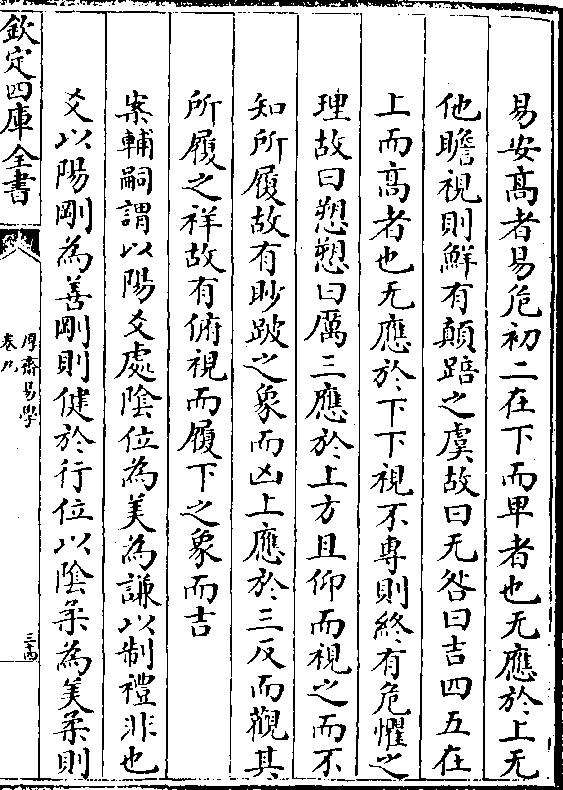 易安髙者易危初二在下而卑者也无應於上无
他瞻視則鮮有顛踣之虞故曰无咎曰吉四五在
上而髙者也无應於下下視不專則終有危懼之
理故曰愬愬曰厲三應於上方且仰而視之而不
知所履故有眇跛之象而凶上應於三反而觀其
所履之祥故有俯視而履下之象而吉
案輔嗣謂以陽爻處陰位為美為謙以制禮非也
爻以陽剛為善剛則健於行位以陰柔為美柔則
欽定四庫全書
厚齋易學
卷九
三十四